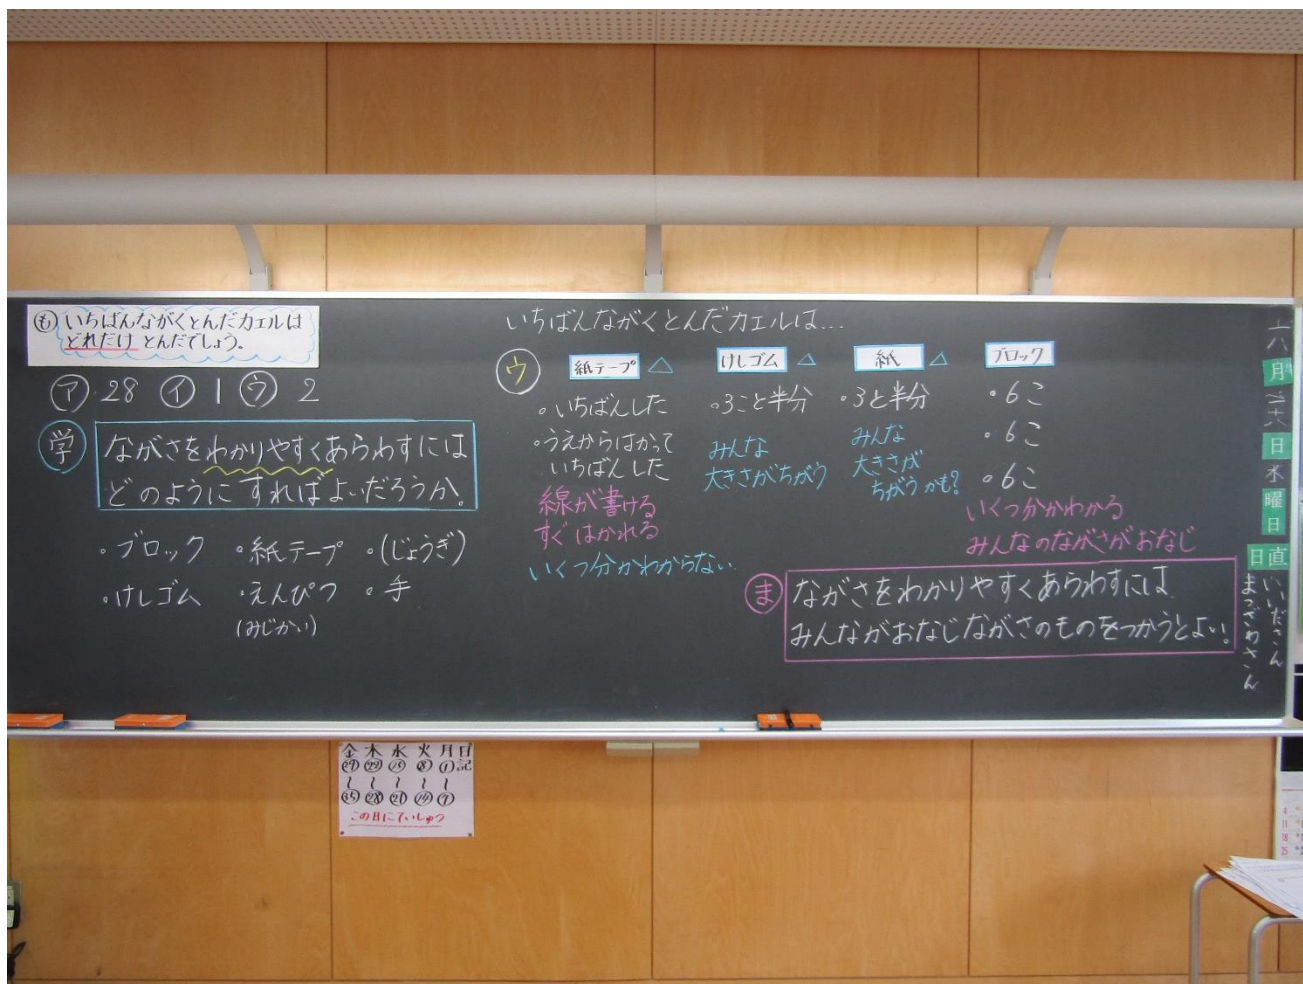 も いちばんながくとんだカエルは
どれだけ とんだでしょう。
ア 28 イ 1 ウ 2
学 ながさをわかりやすくあらわすには
どのようにすればよいだろうか。
・ブロック ・紙テープ ・(じょうぎ)
・けしゴム ・えんぴつ ・手
(みじかい)
いちばんながくとんだカエルは…
ウ
紙テープ △
・いちばんした
・うえからはかって
いちばんした
線が書ける
すぐはかれる
いくつ分かわからない
けしゴム △
・3こと半分
みんな
大きさがちがう
紙 △
・3と半分
みんな
大きさが
ちがうかも?
ブロック
・6こ
・6こ
・6こ
いくつ分かわかる
みんなのながさがおなじ
ま ながさをわかりやすくあらわすには
みんながおなじながさのものをつかうとよい。
月
日
水
曜日
日直
いいださん
まつざわさん
金 木 水 火 月 日記
㉙ ㉒ ⑮ ⑧ ①
〜 〜 〜 〜 〜
㉟ ㉘ ㉑ ⑭ ⑦
この日にていしゅつ
4
11
18
25